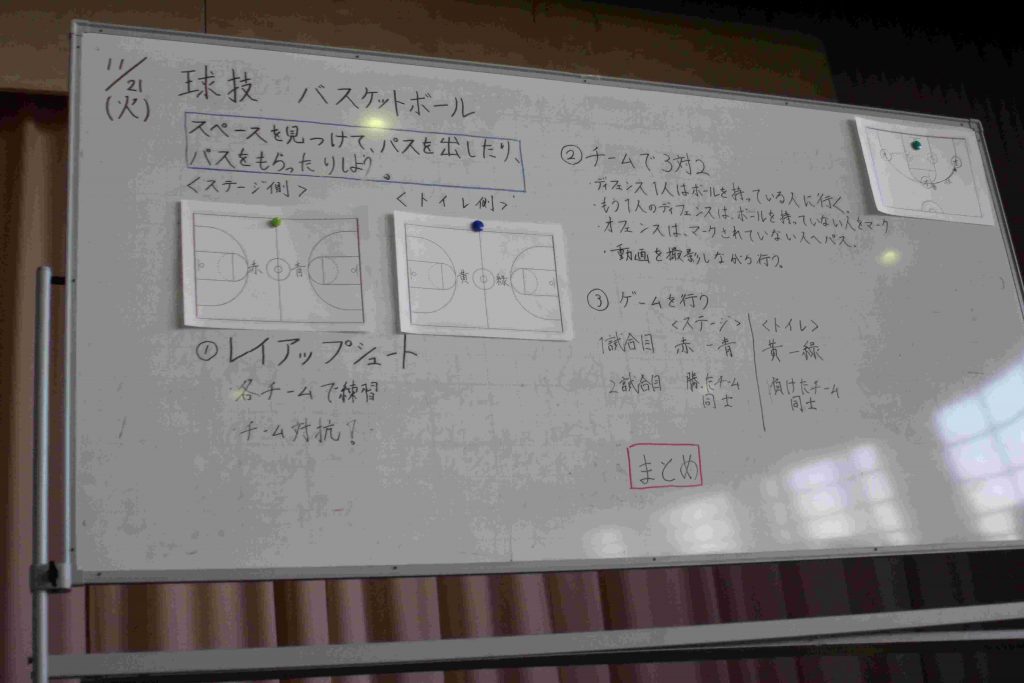 11/21
(火)
球技 バスケットボール
スペースを見つけて、パスを出したり、
パスをもらったりしよう。
<ステージ側>
<トイレ側>
赤 青
黄 緑
① レイアップシュート
・各チームで練習
・チーム対抗!
② チームで3対2
・ディフェンス1人はボールを持っている人に行く。
・もう1人のディフェンスは、ボールを持っていない人をマーク
・オフェンスは、マークされていない人へパス。
・動画を撮影しながら行う。
③ ゲームを行う
<ステージ> <トイレ>
1試合目 赤ー青 黄ー緑
2試合目 勝ったチーム同士 負けたチーム同士
まとめ